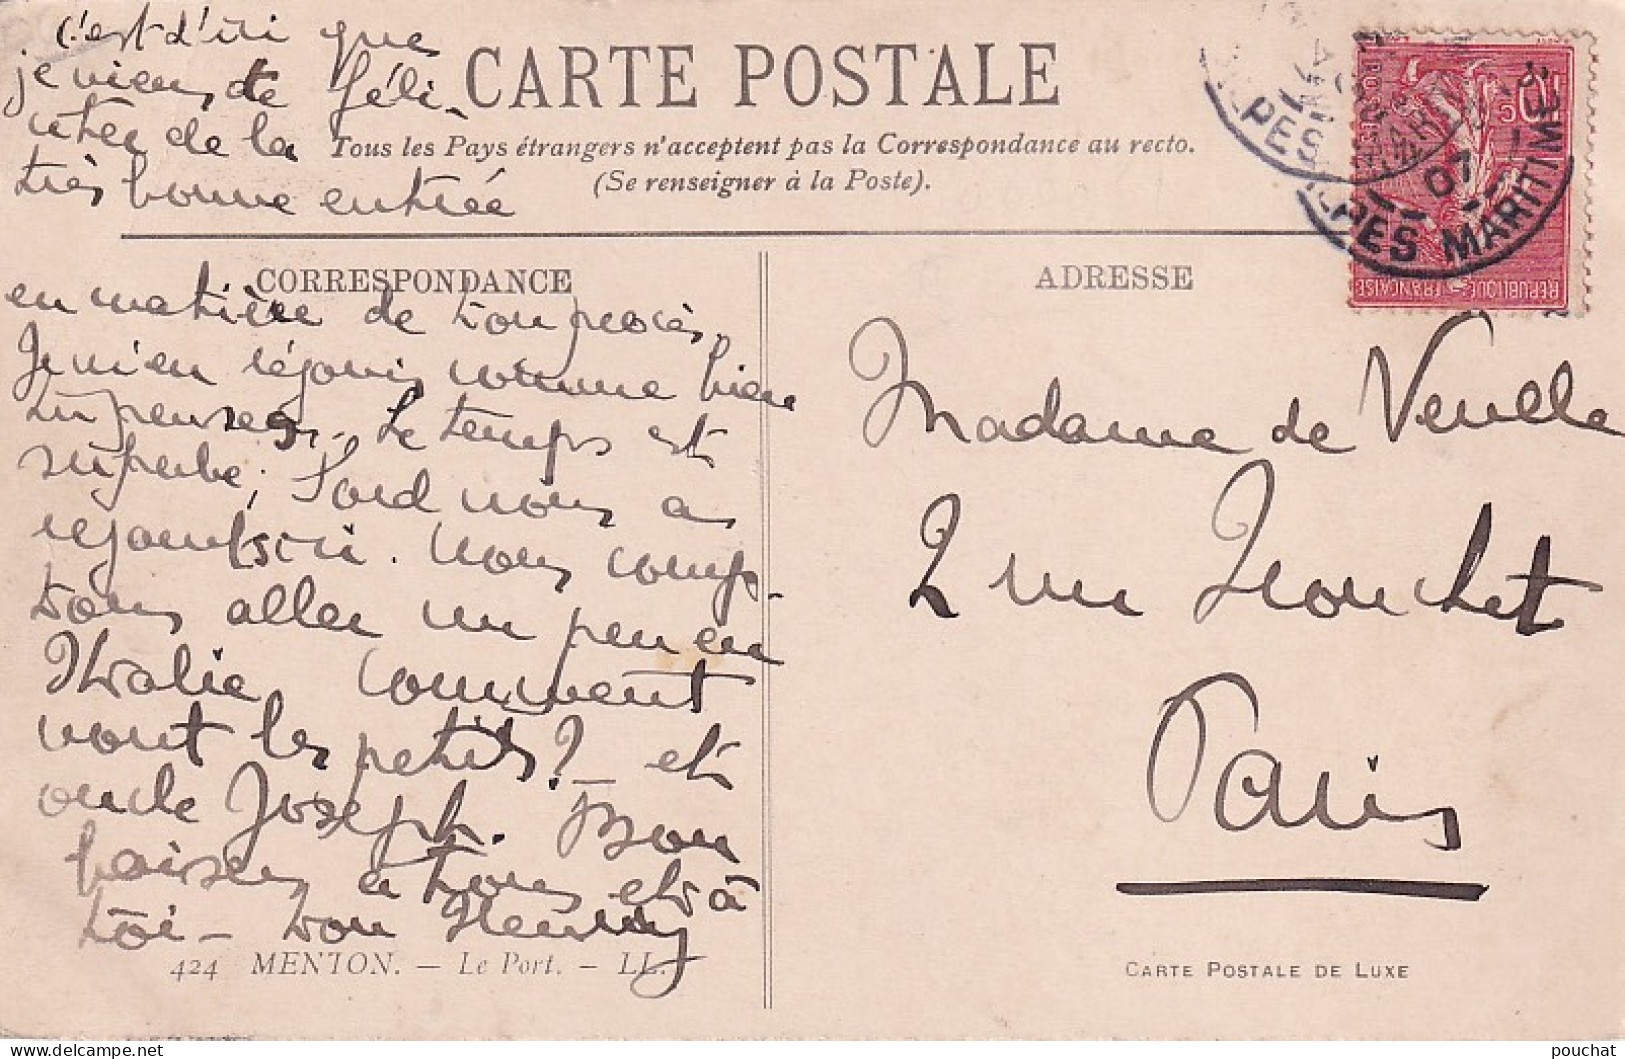 c'est d'ici que
je viens te féli-
citer de la
très bonne entrée
CARTE POSTALE
Tous les Pays étrangers n'acceptent pas la Correspondance au recto.
(Se renseigner à la Poste).
CORRESPONDANCE
en matière de ton procès.
Je m'en réjouis comme bien
tu penses. Le temps est
superbe, nous a
rejoints ici. Nous comp-
tons aller un peu en
Italie, comment
vont les petits? - et
oncle Joseph. Bon
baisers à tous et à
toi - ton Henry
424 MENTON. - Le Port. - LL.
ADRESSE
10c
POSTES
REPUBLIQUE FRANÇAISE
07
ALPES MARITIMES
Madame de
2 rue
Paris
CARTE POSTALE DE LUXE
pouchat